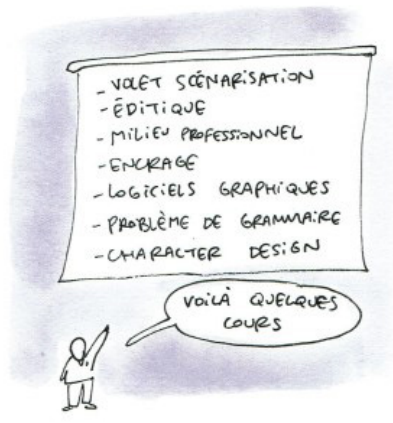 - VOLET SCÉNARISATION
- ÉDITIQUE
- MILIEU PROFESSIONNEL
- ENCRAGE
- LOGICIELS GRAPHIQUES
- PROBLÈME DE GRAMMAIRE
- CHARACTER DESIGN
VOILÀ QUELQUES
COURS